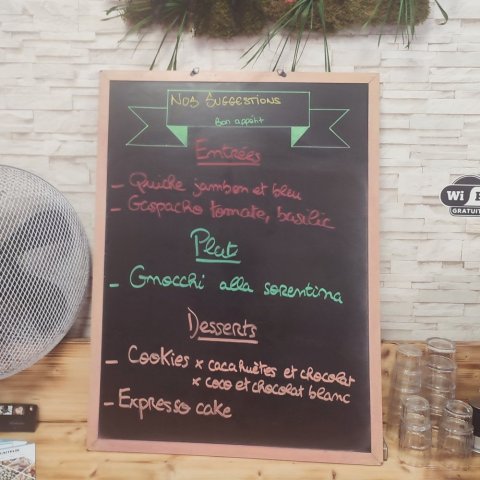 Nos Suggestions
Bon appétit
Entrées
- Quiche jambon et bleu
- Gaspacho tomate, basilic
Plat
- Gnocchi alla sorentina
Desserts
- Cookies x cacahuètes et chocolat
x coco et chocolat blanc
- Expresso cake
Wi
GRATUIT